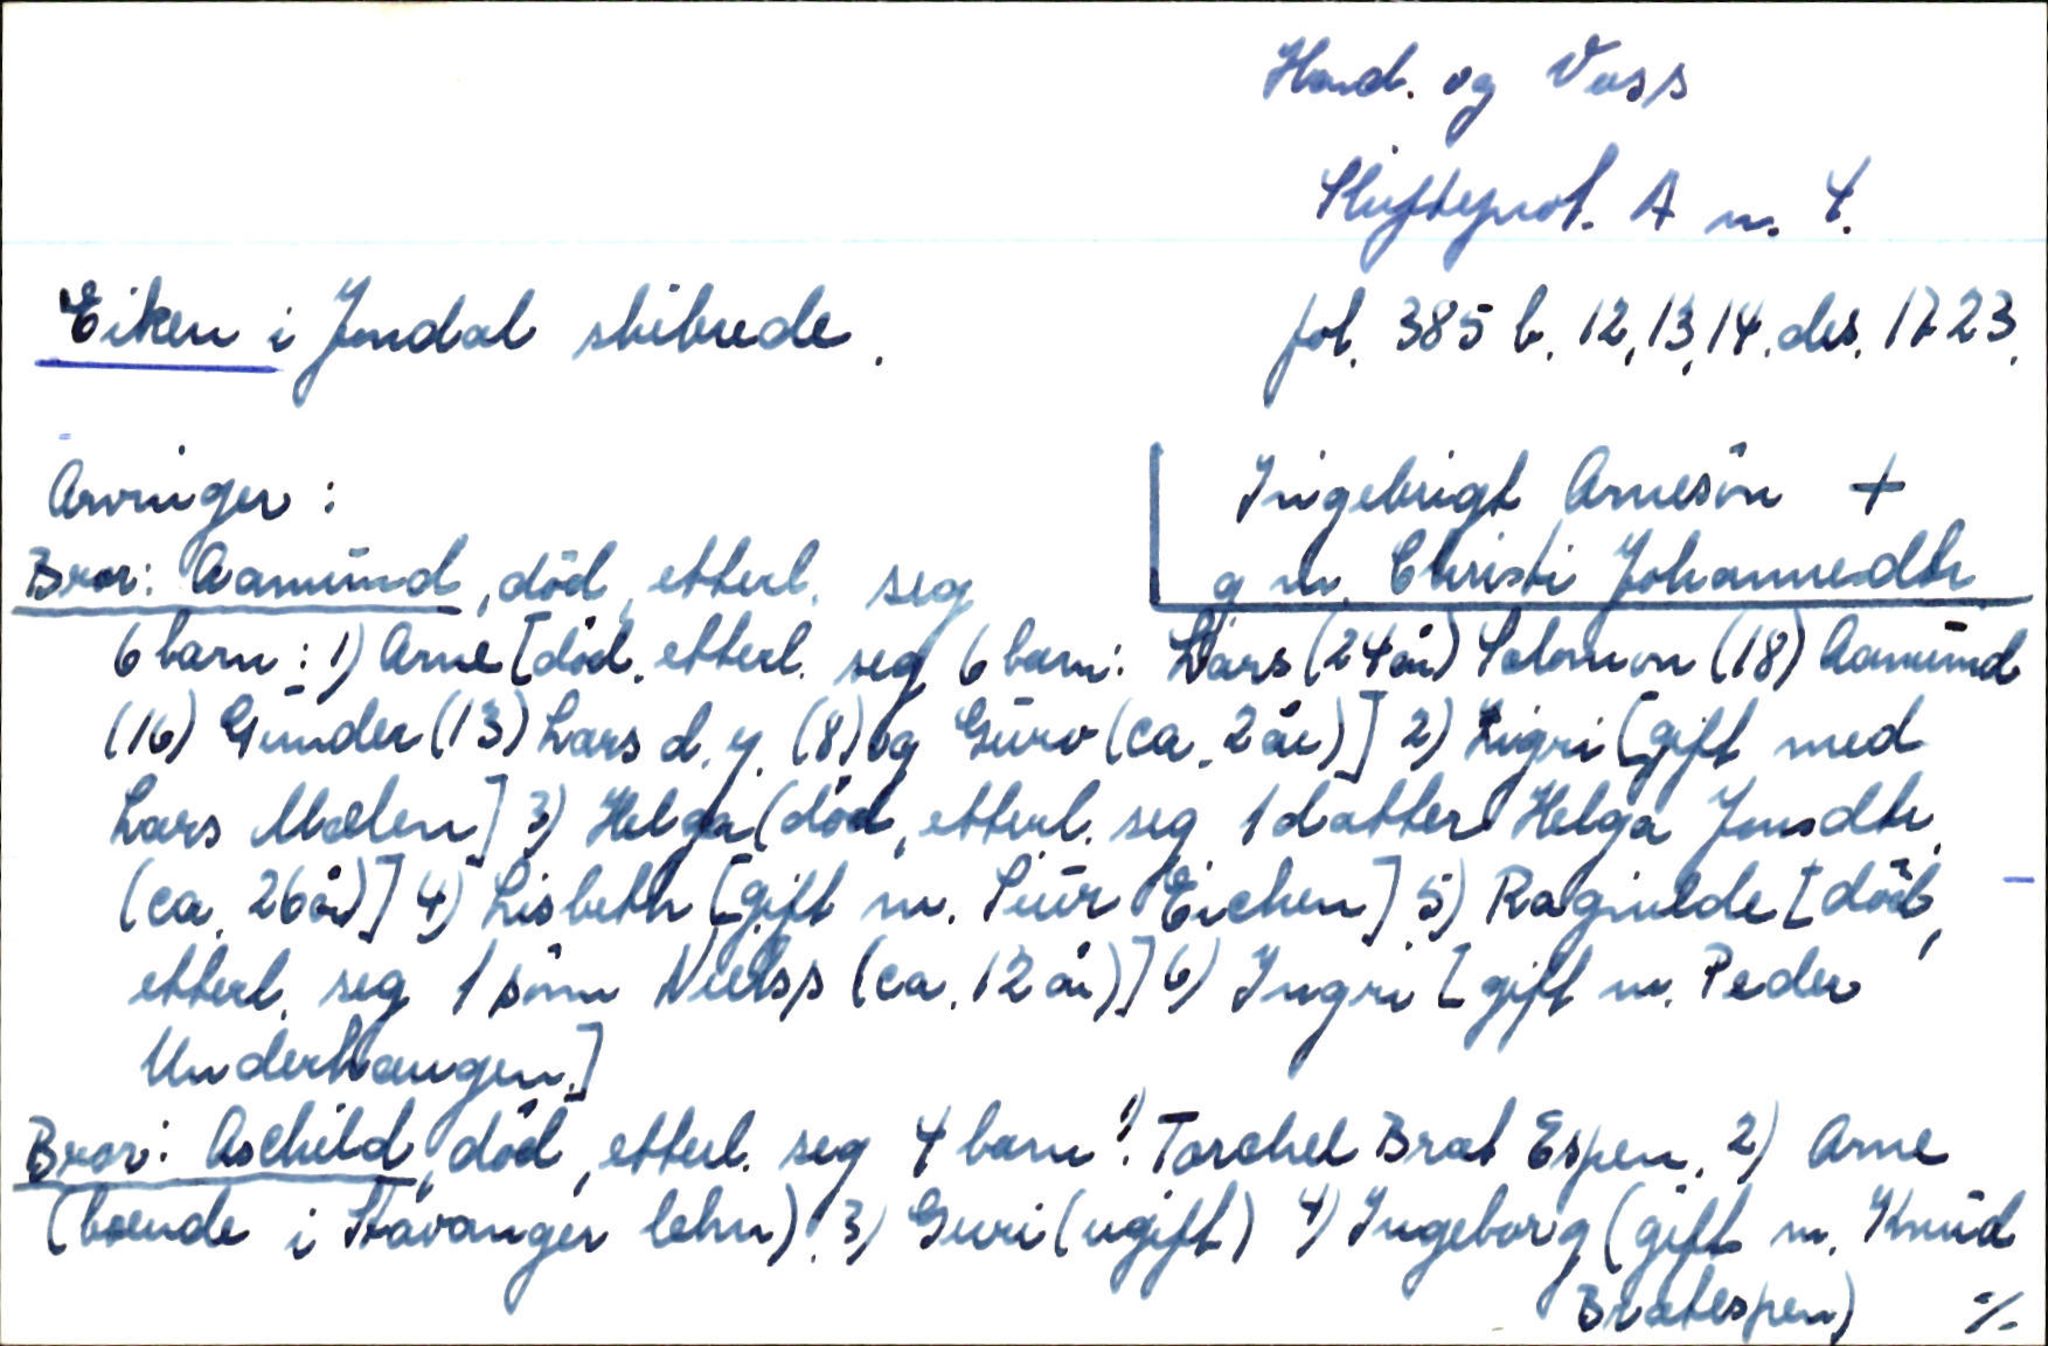 Hard. og Voss
Skifteprot. A nr. 4.
Eiken i Jondal skibrede.
fol. 385 b. 12,13,14. des. 1723.
Arvinger:
Ingebrigt Arnesön +
g m. Christi Johannesdtr.
Bror: Aamund, död, etterl. seg
6 barn: 1) Arne [död. etterl. seg 6 barn: Lars (24 år) Solomon (18) Aamund
(16) Gunder (13) Lars d. y. (8) og Guro (ca. 2 år)] 2) Sigri [gift med
Lars Mælen] 3) Helga (död, etterl. seg 1 datter Helga Jonsdtr.
(ca. 26 år)] 4) Lisbeth [gift m. Siur Eichen] 5) Ragnilde [död,
etterl. seg 1 sönn Nielss (ca. 12 år)] 6) Ingri [gift m. Peder
Underhaugen.]
Bror: Aschild, död, etterl. seg 4 barn: 1) Torchel Brat Espen, 2) Arne
(boende i Stavanger lehn). 3) Guri (ugift) 4) Ingeborg (gift m. Knud
Bratespen) ./.